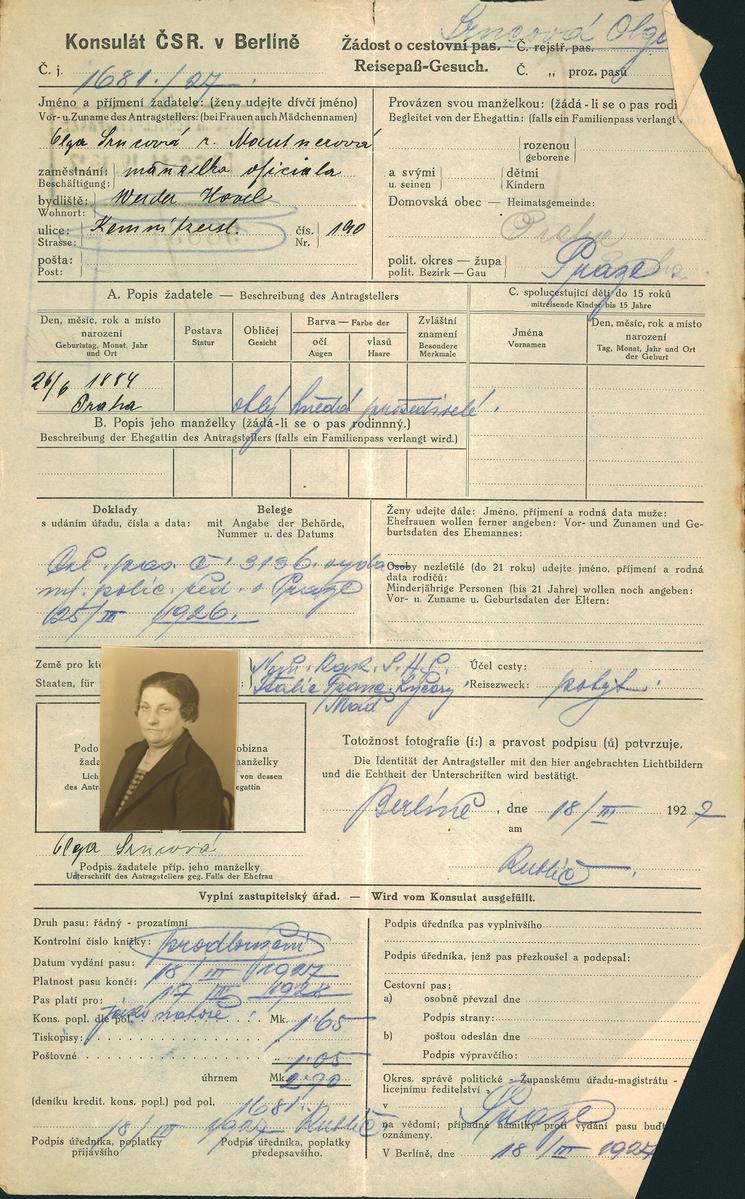 Srncová Olga
Konsulát ČSR. v Berlíně
Žádost o cestovní pas.
Č. rejstř. pas.
Č. j. 1681./27.
Reisepaß-Gesuch.
Č. „ proz. pasů
Jméno a příjmení žadatele: (ženy udejte dívčí jméno)
Vor- u. Zuname des Antragstellers: (bei Frauen auch Mädchennamen)
Olga Srncová r. Mautnerová
zaměstnání: manželka oficiala
Beschäftigung:
bydliště: Werder Havel
Wohnort:
ulice: Kemnitzerst. čís. 190
Strasse: Nr.
pošta:
Post:
Provázen svou manželkou: (žádá-li se o pas rodi
Begleitet von der Ehegattin: (falls ein Familienpass verlangt
rozenou
geborene
a svými dětmi
u. seinen Kindern
Domovská obec — Heimatsgemeinde:
Praha
polit. okres — župa
polit. Bezirk — Gau
Praze
A. Popis žadatele — Beschreibung des Antragstellers
Den, měsíc, rok a místo narození
Geburtstag, Monat, Jahr und Ort
Postava
Statur
Obličej
Gesicht
Barva — Farbe der
očí
Augen
vlasů
Haare
Zvláštní znamení
Besondere Merkmale
26/6 1884
Praha
oblý hnědá prošedivělé.
C. spolucestující děti do 15 roků
mitreisende Kinder bis 15 Jahre
Jména
Vornamen
Den, měsíc, rok a místo narození
Tag, Monat, Jahr und Ort der Geburt
B. Popis jeho manželky (žádá-li se o pas rodinnný.)
Beschreibung der Ehegattin des Antragstellers (falls ein Familienpass verlangt wird.)
Doklady
s udáním úřadu, čísla a data:
Belege
mit Angabe der Behörde, Nummer u. des Datums
pas. č. 3136
polic. řed. v Praze
25/III 1926.
Ženy udejte dále: Jméno, příjmení a rodná data muže:
Ehefrauen wollen ferner angeben: Vor- und Zunamen und Geburtsdaten des Ehemannes:
Osoby nezletilé (do 21 roku) udejte jméno, příjmení a rodná data rodičů:
Minderjährige Personen (bis 21 Jahre) wollen noch angeben:
Vor- u. Zuname u. Geburtsdaten der Eltern:
Země pro kte
Staaten, für
Něm. Rak. S.H.S.
Italie Franc. Švýcary
Maď
Účel cesty:
Reisezweck: pobyt.
Podo obizna
žada manželky
Lich von dessen
des Antr egattin
Olga Srncová
Podpis žadatele příp. jeho manželky
Unterschrift des Antragstellers geg. Falls der Ehefrau
Totožnost fotografie (í:) a pravost podpisu (ů) potvrzuje.
Die Identität der Antragsteller mit den hier angebrachten Lichtbildern
und die Echtheit der Unterschriften wird bestätigt.
Berlíně, dne 18/III 1927
am
Vyplní zastupitelský úřad. — Wird vom Konsulat ausgefüllt.
Druh pasu: řádný - prozatímní
Kontrolní číslo knížky: prodloužení
Datum vydání pasu: 18/III 1927
Platnost pasu končí: 17/III 1928
Pas platí pro: jako nahoře.
Kons. popl. dle pol. Mk. 1'65
Tiskopisy:
Poštovné „ 1'05
úhrnem Mk. 2'70
(deníku kredit. kons. popl.) pod pol. 1681.
18/III 1927
Podpis úředníka, poplatky přijávšího.
Podpis úředníka, poplatky předepsavšího.
Podpis úředníka pas vyplnivšího.
Podpis úředníka, jenž pas přezkoušel a podepsal:
Cestovní pas:
a) osobně převzal dne
Podpis strany:
b) poštou odeslán dne
Podpis výpravčího:
Okres. správě politické - Županskému úřadu-magistrátu -
licejnímu ředitelství
v Praze
na vědomí; případné námitky proti vydání pasu buďt
oznámeny.
V Berlíně, dne 18/III 1927